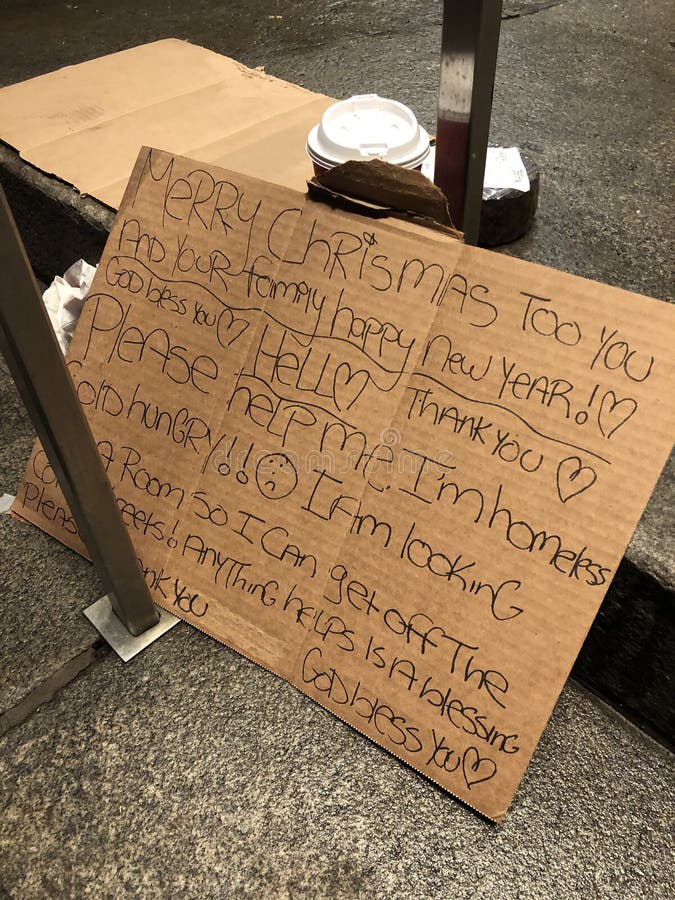 MERRY ChRiSMAS TOO YOU
AND YOUR fAMPlY hAppY NEW YEAR! ♡
GOD blESS YOU ♡ HEllO ♡ THANK YOU ♡
PlEASE hElP ME. I'm homElESS
COlD hUNGRY!! ☹ I Am lOOkiNG
A ROOm SO I CAN gET Off ThE
STREETS! ANYThiNG hElPS IS A blESSiNG
PlEASE ThANK YOU GOD blESS YOU ♡
dreamstime